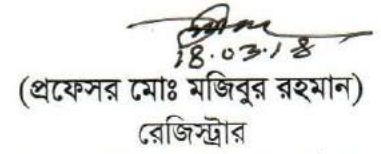 18.03.18
(প্রফেসর মোঃ মজিবুর রহমান)
রেজিস্ট্রার